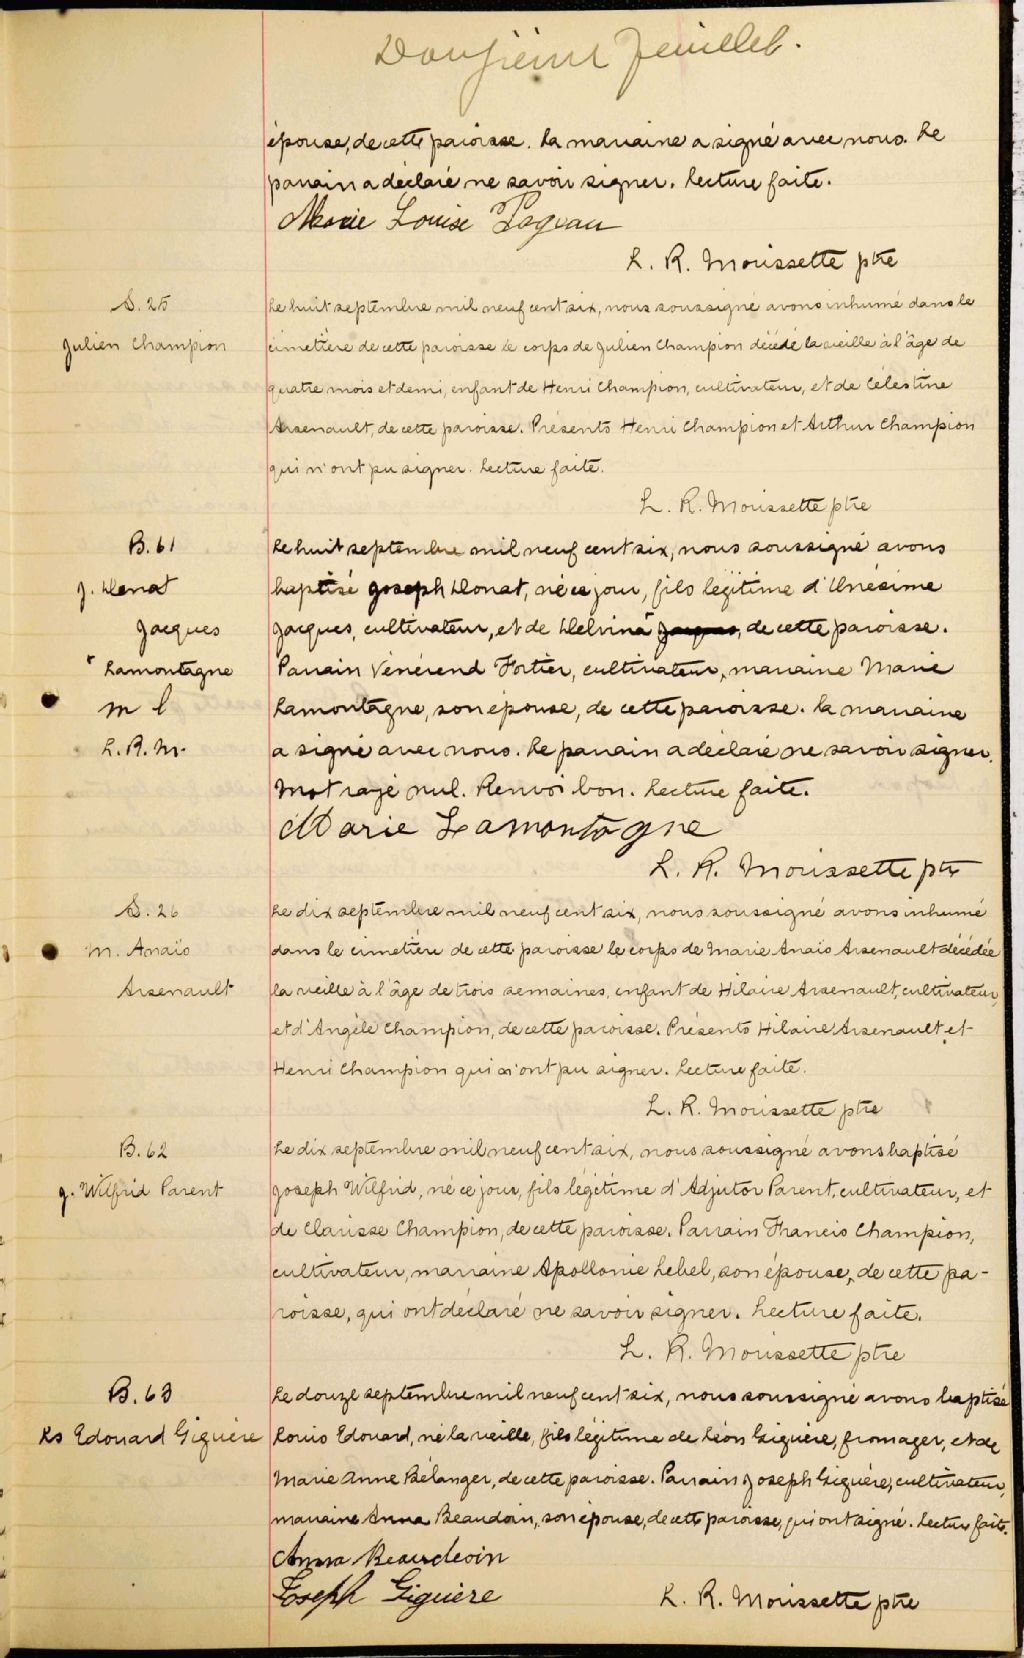 Douzième feuillet.
épouse, de cette paroisse. La marraine a signé avec nous. Le
parrain a déclaré ne savoir signer. Lecture faite.
Marie Louise Pageau
L. R. Morissette ptre
S. 25
Julien Champion
Le huit septembre mil neuf cent six, nous soussigné avons inhumé dans le
cimetière de cette paroisse le corps de Julien Champion décédé la veille à l'âge de
quatre mois et demi, enfant de Henri Champion, cultivateur, et de Célestine
Arsenault, de cette paroisse. Présents Henri Champion et Arthur Champion
qui n'ont pu signer. Lecture faite.
L. R. Morissette ptre
B. 61
J. Donat
Jacques
+ Lamontagne
M L
L. R. M.
Le huit septembre mil neuf cent six, nous soussigné avons
baptisé Joseph Donat, né ce jour, fils légitime d'Onésime
Jacques, cultivateur, et de Delvina + Jacques, de cette paroisse.
Parrain Vénérend Fortier, cultivateur, marraine Marie
Lamontagne, son épouse, de cette paroisse. La marraine
a signé avec nous. Le parrain a déclaré ne savoir signer.
Mot rayé nul. Renvoi bon. Lecture faite.
Marie Lamontagne
L. R. Morissette ptre
S. 26
M. Anaïs
Arsenault
Le dix septembre mil neuf cent six, nous soussigné avons inhumé
dans le cimetière de cette paroisse le corps de Marie Anaïs Arsenault décédée
la veille à l'âge de trois semaines, enfant de Hilaire Arsenault, cultivateur,
et d'Angèle Champion, de cette paroisse. Présents Hilaire Arsenault et
Henri Champion qui n'ont pu signer. Lecture faite.
L. R. Morissette ptre
B. 62
J. Wilfrid Parent
Le dix septembre mil neuf cent six, nous soussigné avons baptisé
Joseph Wilfrid, né ce jour, fils légitime d'Adjutor Parent, cultivateur, et
de Clarisse Champion, de cette paroisse. Parrain Francis Champion,
cultivateur, marraine Apollonie Lebel, son épouse, de cette pa-
roisse, qui ont déclaré ne savoir signer. Lecture faite.
L. R. Morissette ptre
B. 63
Ls Edouard Giguère
Le douze septembre mil neuf cent six, nous soussigné avons baptisé
Louis Edouard, né la veille, fils légitime de Léon Giguère, fromager, et de
Marie Anne Bélanger, de cette paroisse. Parrain Joseph Giguère, cultivateur,
marraine Anna Beaudoin, son épouse, de cette paroisse, qui ont signé. Lecture faite.
Anna Beaudeoin
Joseph Giguère
L. R. Morissette ptre